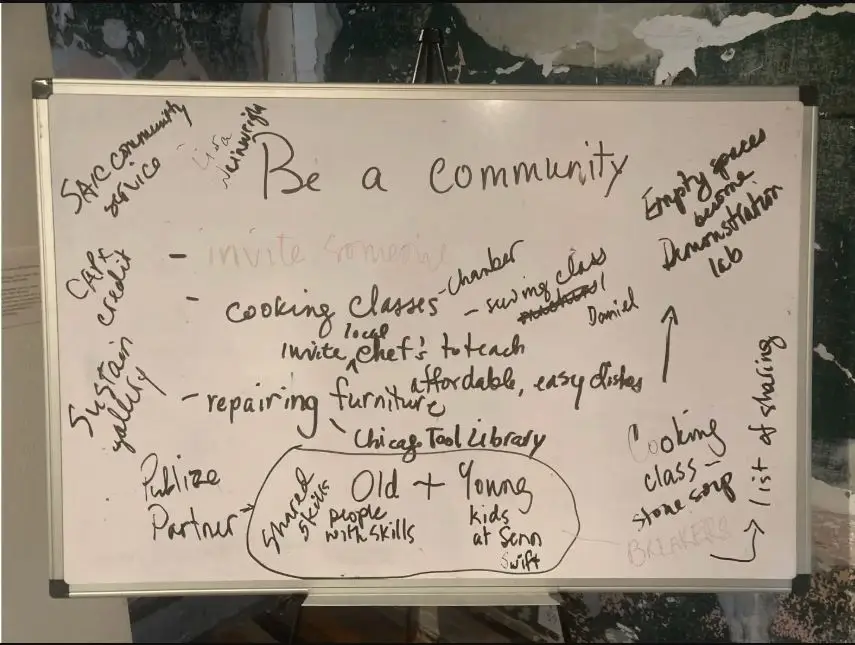 Be a community
SAIC community
service
Lisa
Wainwright
Empty spaces
become
Demonstration
lab
- invite someone
CAPx
credit
- cooking classes - Chamber
- sewing class
Daniel
invite local chef's to teach
affordable, easy dishes
Sustain
gallery
- repairing furniture
Chicago Tool Library
Publize
Partner
Shared
Skills
Old + Young
people
with skills
kids
at Senn
Swift
Cooking
class -
stone soup
BREAKERS
list of sharing